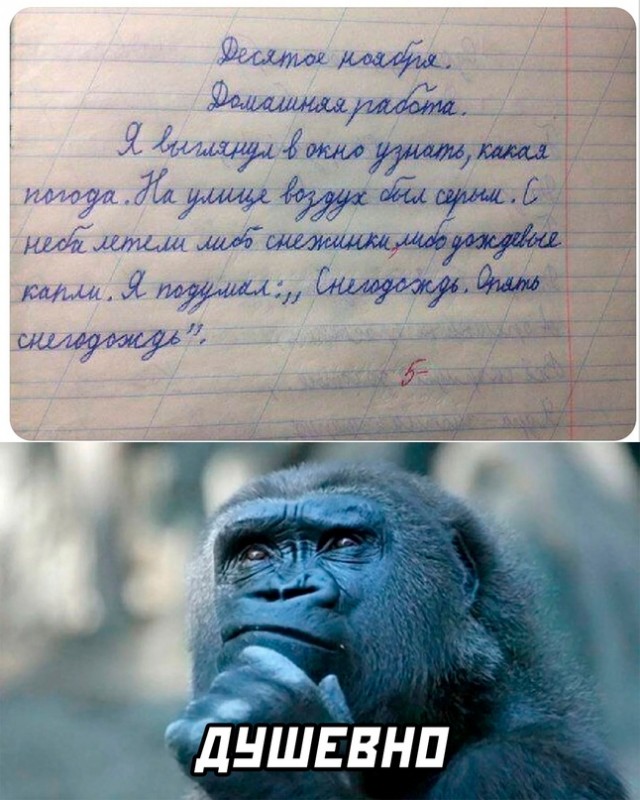 Десятое ноября.
Домашняя работа.
Я выглянул в окно узнать, какая
погода. На улице воздух был серым. С
неба летели либо снежинки, либо дождевые
капли. Я подумал: „ Снегодождь. Опять
снегодождь”.
5-
ДУШЕВНО